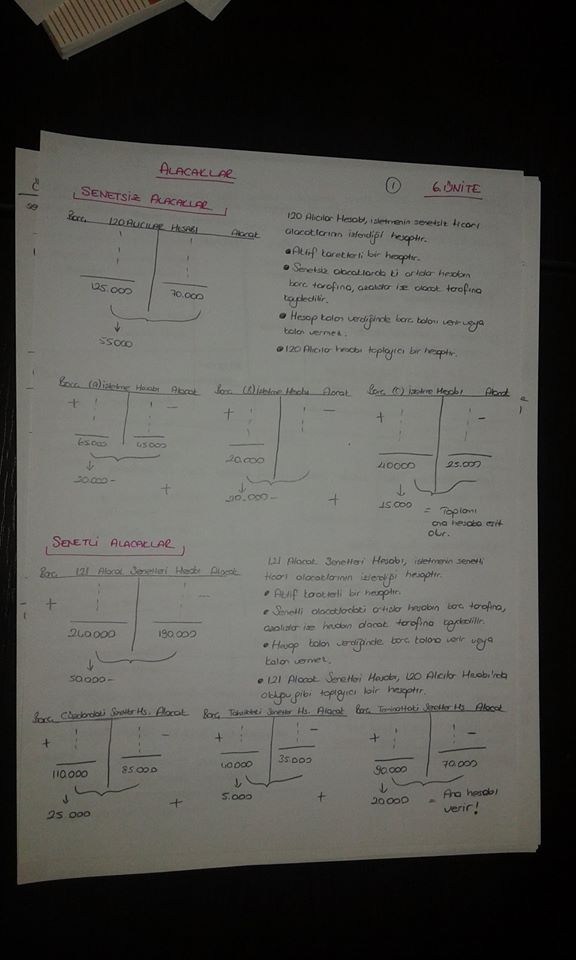 ALACAKLAR
① 6. ÜNİTE
SENETSİZ ALACAKLAR
Borç 120 ALICILAR HESABI Alacak
125.000 70.000
55000
120 Alıcılar Hesabı, işletmenin senetsiz ticari
alacaklarının izlendiği hesaptır.
• Aktif karekterli bir hesaptır.
• Senetsiz alacaklarda ki artışlar hesabın
borç tarafına, azalışlar ise alacak tarafına
kaydedilir.
• Hesap kalan verdiğinde borç kalanı verir veya
kalan vermez.
• 120 Alıcılar hesabı toplayıcı bir hesaptır.
Borç (A) işletme Hesabı Alacak
+ -
65.000 45.000
20.000-
+
Borç (B) işletme Hesabı Alacak
+ -
20.000
20.000-
+
Borç (C) işletme Hesabı Alacak
+ -
40000 25.000
15.000 = Toplamı
ana hesaba eşit
olur.
SENETLİ ALACAKLAR
Borç 121 Alacak Senetleri Hesabı Alacak
+
240.000 190.000
50.000-
121 Alacak Senetleri Hesabı, işletmenin senetli
ticari alacaklarının izlendiği hesaptır.
• Aktif karakterli bir hesaptır.
• Senetli alacaklardaki artışlar hesabın borç tarafına,
azalışlar ise hesabın alacak tarafına kaydedilir.
• Hesap kalan verdiğinde borç kalanı verir veya
kalan vermez.
• 121 Alacak Senetleri Hesabı, 120 Alıcılar Hesabı'nda
olduğu gibi toplayıcı bir hesaptır.
Borç Cüzdandaki Senetler Hs. Alacak
+ -
110.000 85.000
25.000
+
Borç Tahsildeki Senetler Hs. Alacak
+ -
40.000 35.000
5.000
+
Borç Teminattaki Senetler Hs Alacak
+ -
90.000 70.000
20.000 = Ana hesabı
verir!